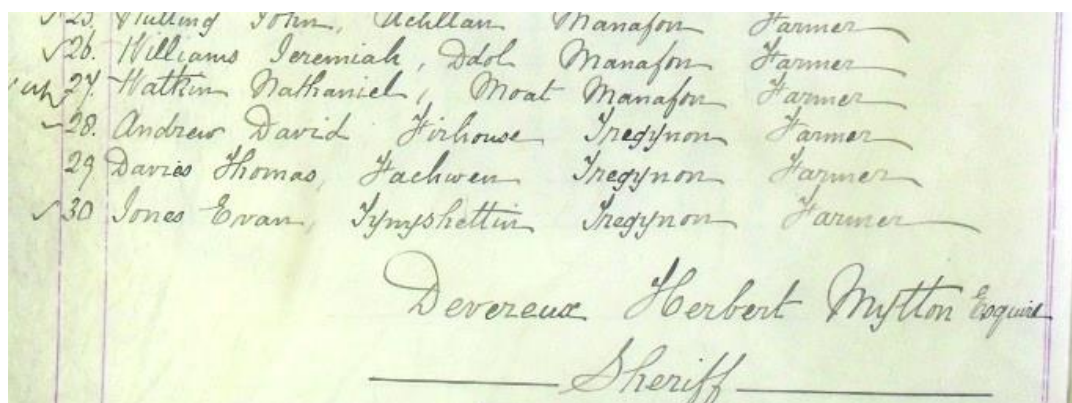 25. John, Manafon Farmer
26. Williams Jeremiah, Ddol Manafon Farmer
27. Watkin Nathaniel, Moat Manafon Farmer
28. Andrew David Firhouse Tregynon Farmer
29 Davies Thomas, Fachwen Tregynon Farmer
30 Jones Evan, Tynyshettin Tregynon Farmer
Devereux Herbert Mytton Esquire
Sheriff